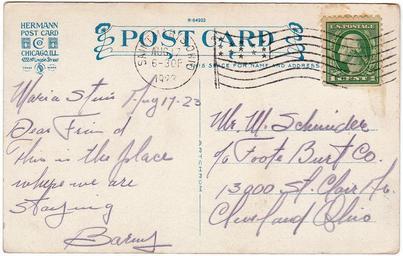 R-64922
HERMANN
POST CARD
CHICAGO, ILL.
POST CARD
THIS SPACE FOR NAME AND ADDRESS
AUG 17
6-30P
1923
OHIO
U.S. POSTAGE
1 CENT 1
ARTCHROM
Maria Stein Aug 17-23
Dear Friend
This is the place
where we are
staying
Barney
Mr. M. Schneider
c/o Foote Burt Co.
13000 St. Clair Av.
Cleveland Ohio